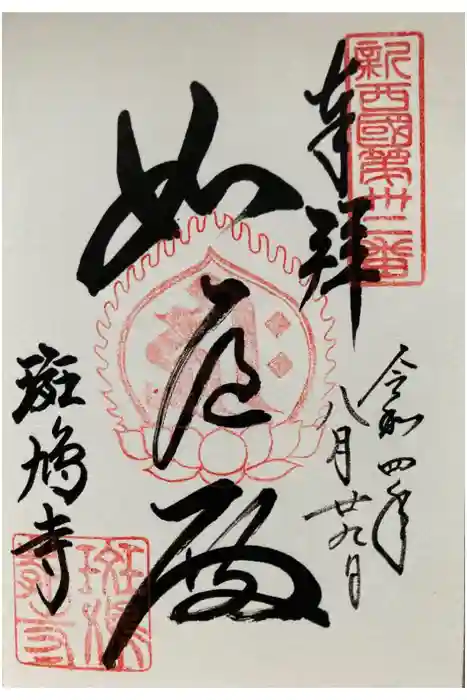 新西國第卅二番
奉拝
令和四年
八月廿九日
如意殿
斑鳩寺
斑鳩寺